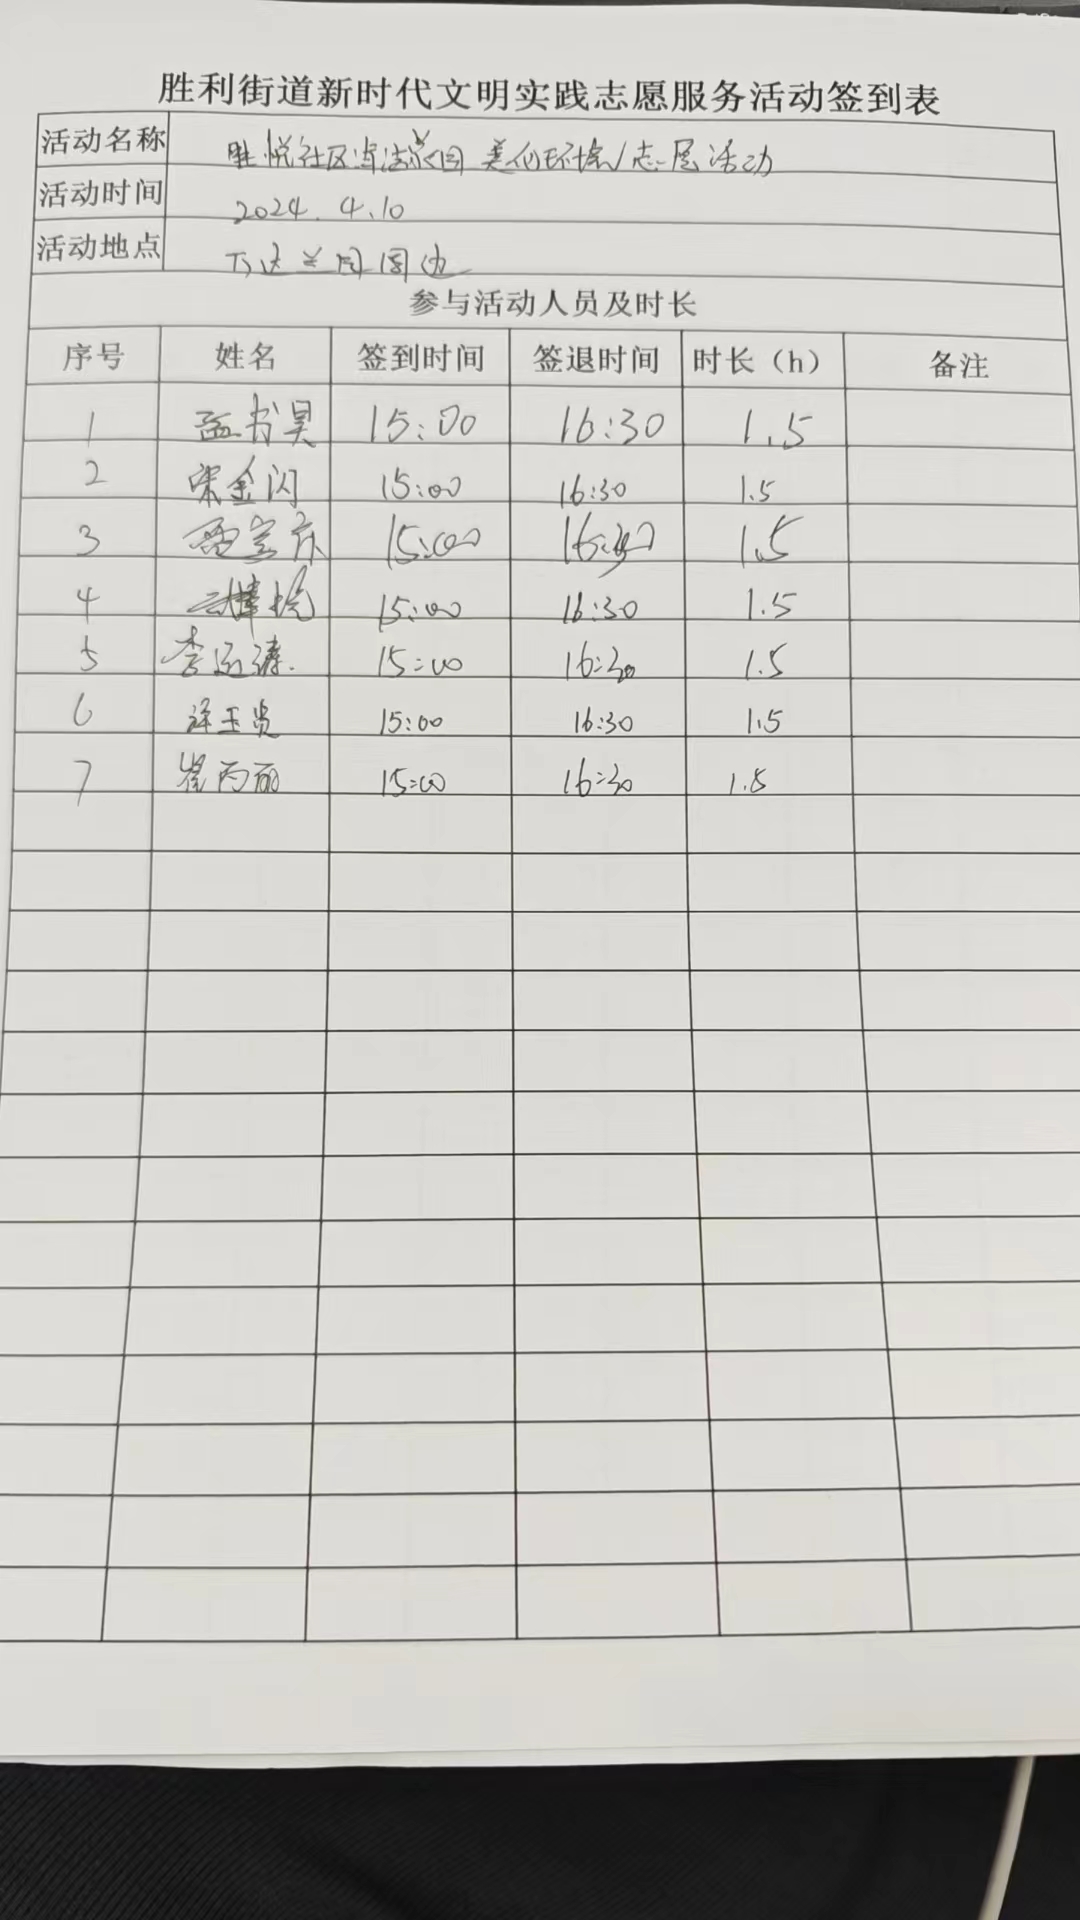 胜利街道新时代文明实践志愿服务活动签到表
活动名称 胜悦社区清洁家园 美化环境 志愿活动
活动时间 2024.4.10
活动地点 万达公园周边
参与活动人员及时长
序号 姓名 签到时间 签退时间 时长（h） 备注
1 孟书昊 15:00 16:30 1.5
2 宋金闪 15:00 16:30 1.5
3 15:00 16:30 1.5
4 15:00 16:30 1.5
5 李 15:00 16:30 1.5
6 玉贵 15:00 16:30 1.5
7 崔丙丽 15:00 16:30 1.5